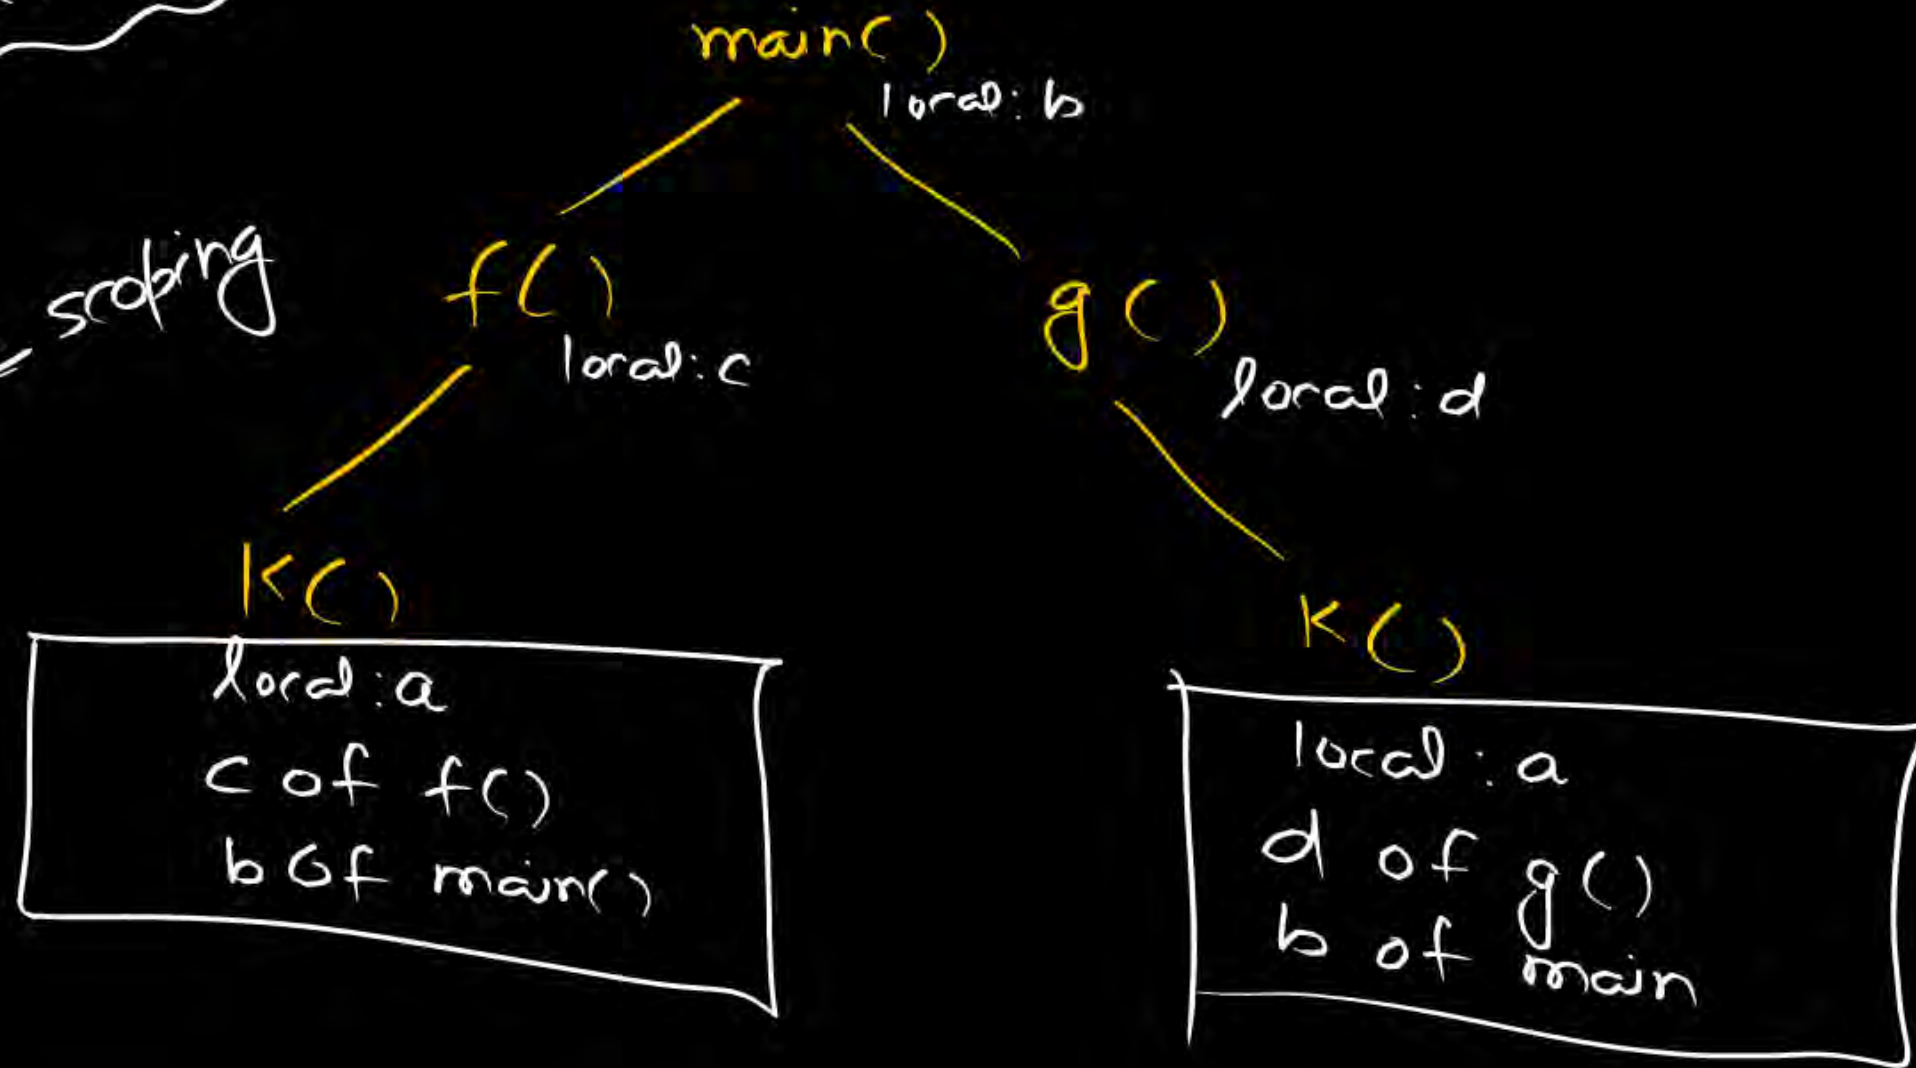 main()
local: b
scoping
f()
local: c
g()
local: d
K()
local: a
c of f()
b of main()
K()
local: a
d of g()
b of main